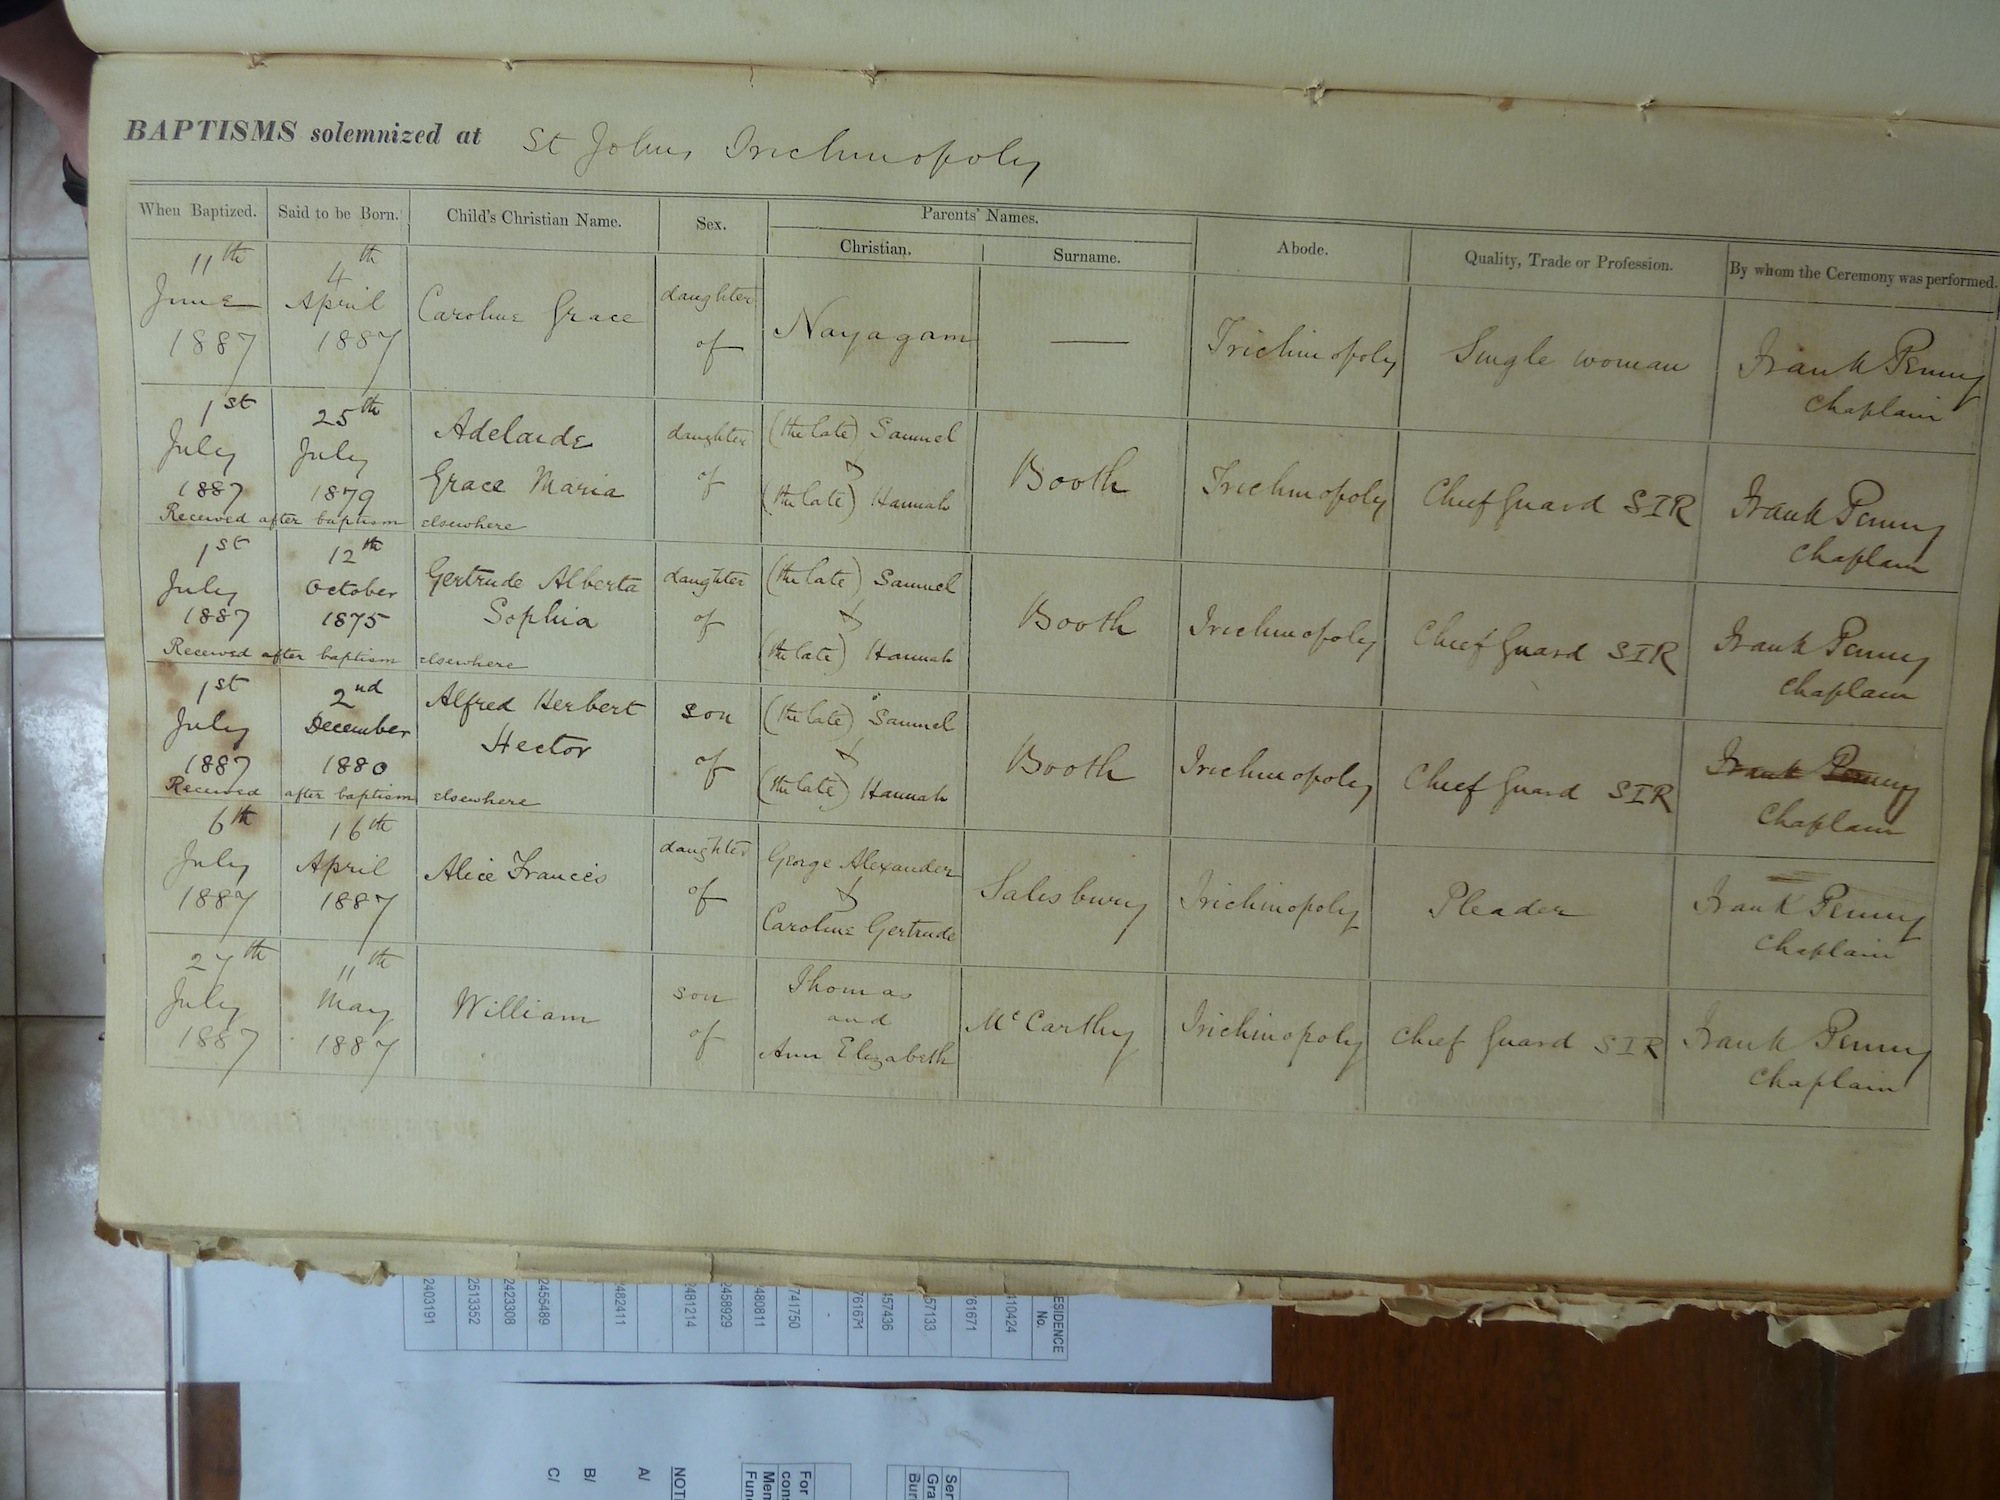 BAPTISMS solemnized at St Johns Trichinopoly
When Baptized. Said to be Born. Child's Christian Name. Sex. Parents' Names. Christian. Surname. Abode. Quality, Trade or Profession. By whom the Ceremony was performed.
11th June 1887 4th April 1887 Caroline Grace daughter of Nayagam — Trichinopoly Single woman Frank Penny Chaplain
1st July 1887 25th July 1879 Adelaide Grace Maria daughter of (the late) Samuel & (the late) Hannah Booth Trichinopoly Chief Guard SIR Frank Penny Chaplain
Received after baptism elsewhere
1st July 1887 12th October 1875 Gertrude Alberta Sophia daughter of (the late) Samuel & (the late) Hannah Booth Trichinopoly Chief Guard SIR Frank Penny Chaplain
Received after baptism elsewhere
1st July 1887 2nd December 1880 Alfred Herbert Hector son of (the late) Samuel & (the late) Hannah Booth Trichinopoly Chief Guard SIR Frank Penny Chaplain
Received after baptism elsewhere
6th July 1887 16th April 1887 Alice Francis daughter of George Alexander & Caroline Gertrude Salisbury Trichinopoly Pleader Frank Penny Chaplain
27th July 1887 11th May 1887 William son of Thomas and Ann Elizabeth McCarthy Trichinopoly Chief Guard SIR Frank Penny Chaplain
RESIDENCE No.
410424
761671
457133
457436
761671
-
741750
2480811
2458929
2481214
2482411
2455489
2423308
2513352
2403191
A/
B/
C/